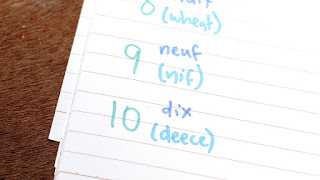 8
(wheat)
9 neuf
(nif)
10 dix
(deece)